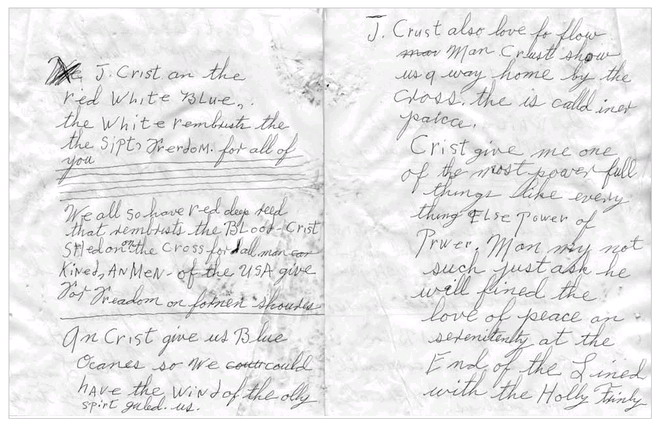 J. Crist an the
red White Blue,.
the White rembrists the
the Sipts Freedom. for all of
you
We all so have red deep reed
that rembrists the BLood-Crist
SHed on the Cross for all man
Kined, AN MeN - of the USA give
For Freadom on fornen shouries
An Crist give us Blue
Ocanes so We could
hAve the WiNd of the olly
spirt guled. us.
J. Crust also love fo flow
Man Crust show
us a way home by the
Cross. the is calld iner
paicce.
Crist give me one
of the most power full
things like every
thing Else Power of
Prwer, Man my not
such just ask he
will fined the
love of peace an
serenitenty at the
End of the Lined
with the Holly Trinly